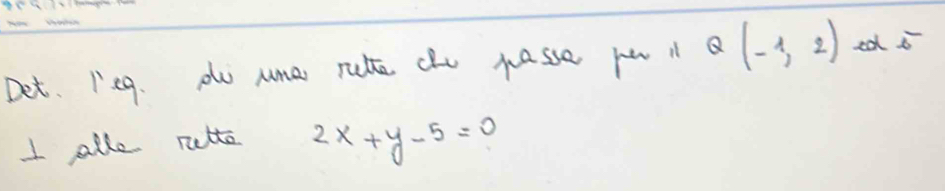 Det. l'eq. di una retta che passa per il Q (-1, 2) ed è
⊥ alla retta 2x + y - 5 = 0